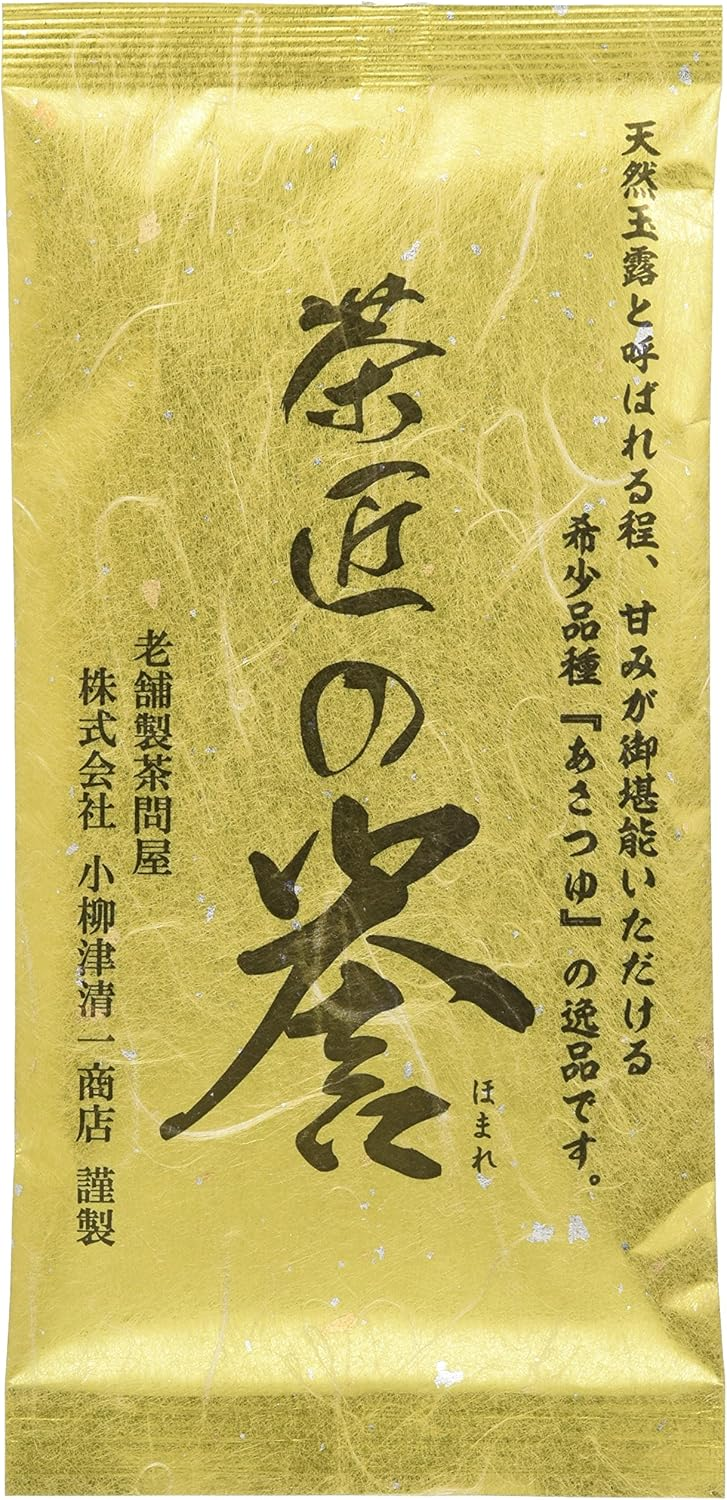 天然玉露と呼ばれる程、甘みが御堪能いただける
希少品種『あさつゆ』の逸品です。
茶匠の誉
ほまれ
老舗製茶問屋
株式会社 小柳津清一商店 謹製